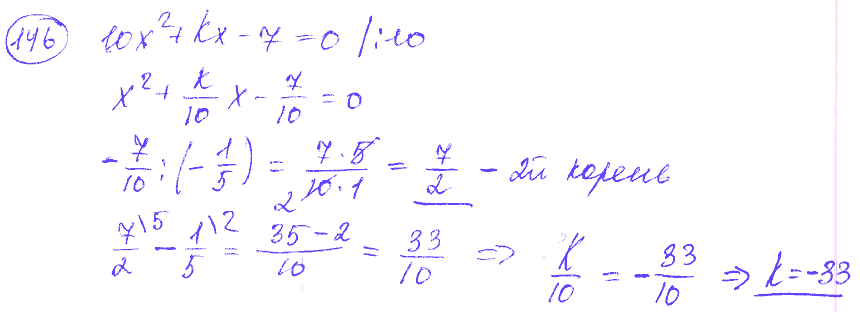 146 10x² + kx - 7 = 0 /:10
x² + k/10 x - 7/10 = 0
-7/10 : (-1/5) = 7·5/10·1 = 7/2 - 2й корень
7/2\5 - 1/5\2 = 35-2/10 = 33/10 ⇒ k/10 = -33/10 ⇒ k=-33